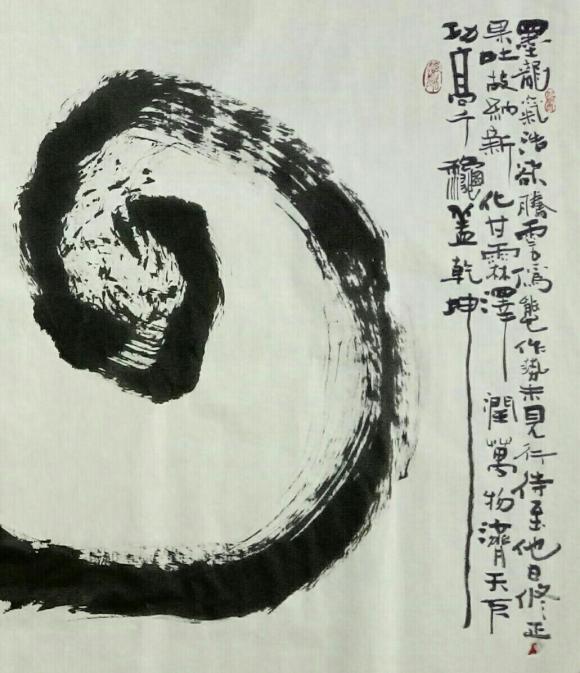 墨龍氣浩欲騰雲僞態作勢未見行待至他日修正
果吐故納新化甘霖澤潤萬物濟天下
功高千穐蓋乾坤